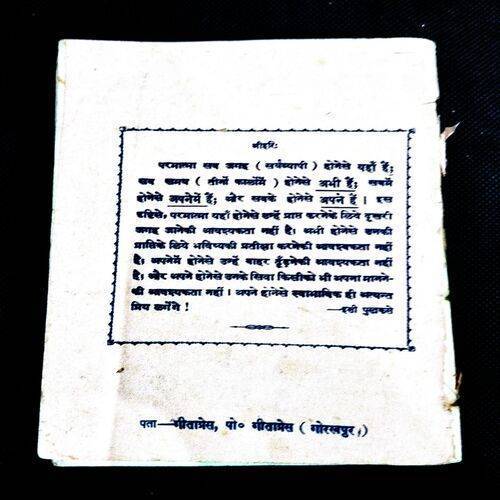 श्रीहरिः
परमात्मा सब जगह (सर्वव्यापी) होनेसे यहाँ हैं;
सब समय (तीनों कालोंमें) होनेसे अभी हैं; सबमें
होनेसे अपनेमें हैं; और सबके होनेसे अपने हैं। इस
दृष्टिसे, परमात्मा यहाँ होनेसे उन्हें प्राप्त करनेके लिये दूसरी
जगह जानेकी आवश्यकता नहीं है। अभी होनेसे उनकी
प्राप्तिके लिये भविष्यकी प्रतीक्षा करनेकी आवश्यकता नहीं
है। अपनेमें होनेसे उन्हें बाहर ढूँढ़नेकी आवश्यकता नहीं
है। और अपने होनेसे उनके सिवा किसीको भी अपना मानने-
की आवश्यकता नहीं। अपने होनेसे स्वाभाविक ही अत्यन्त
प्रिय लगेंगे!
—इसी पुस्तकसे
पता—गीताप्रेस, पो० गीताप्रेस (गोरखपुर)